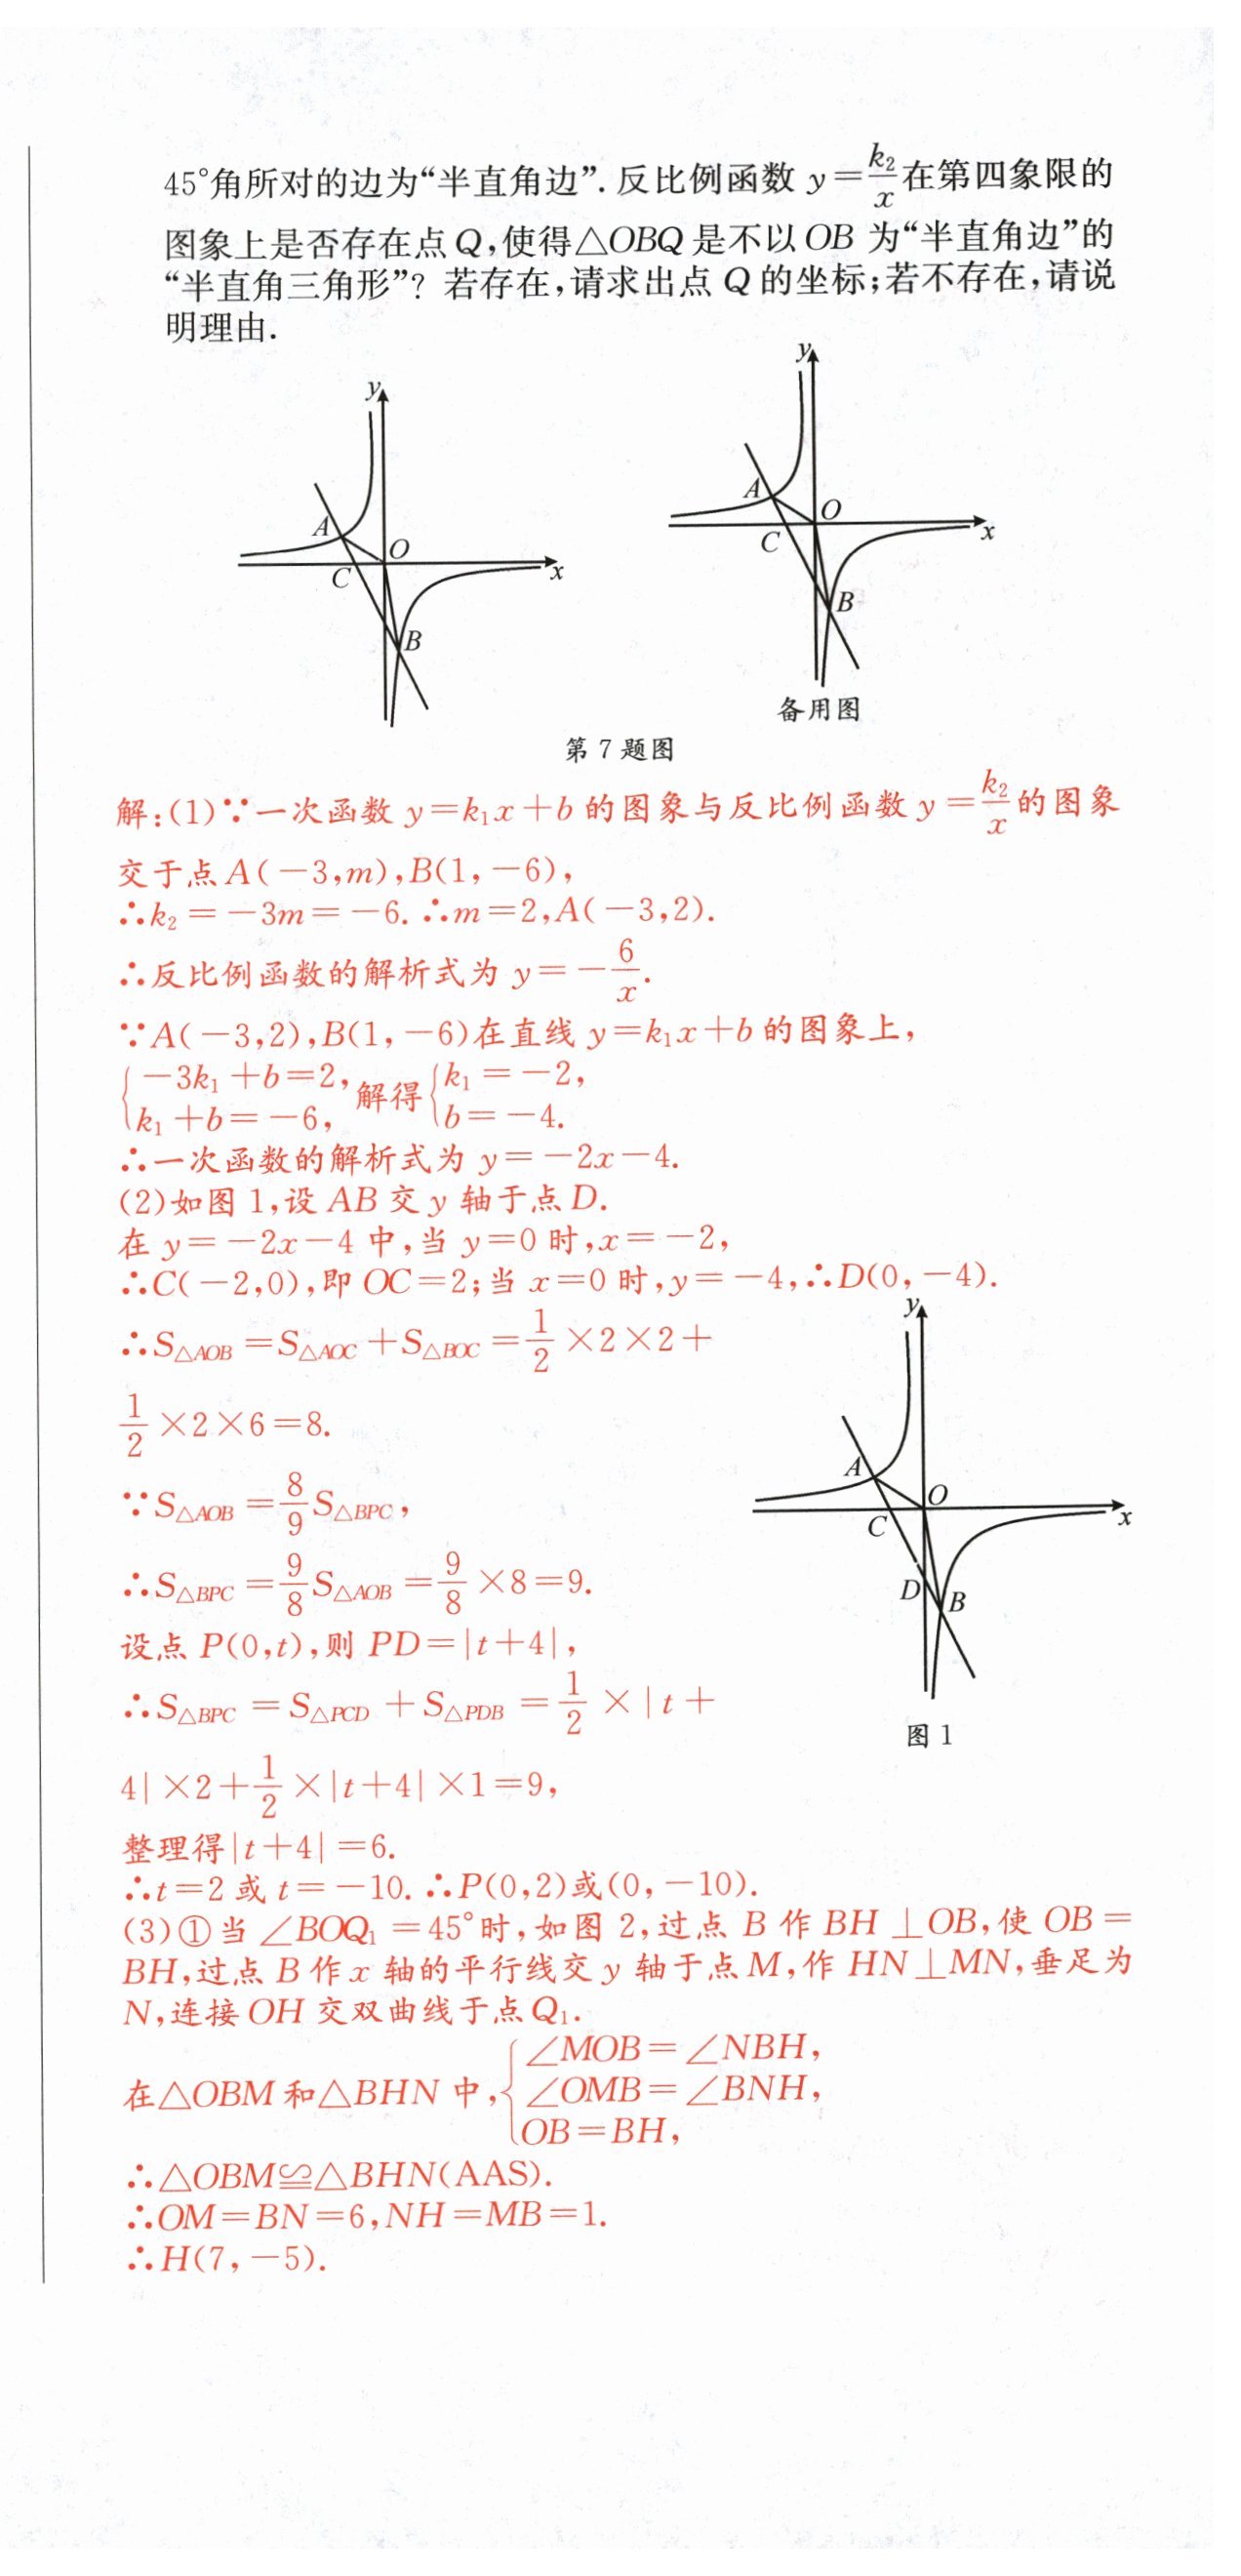 45°角所对的边为“半直角边”. 反比例函数 y=k₂/x在第四象限的
图象上是否存在点Q,使得△OBQ是不以OB为“半直角边”的
“半直角三角形”? 若存在,请求出点Q的坐标;若不存在,请说
明理由.
y A O C x B
y A O C x B
备用图
第7题图
解:(1)∵一次函数 y=k₁x+b的图象与反比例函数 y=k₂/x的图象
交于点A(-3,m),B(1,-6),
∴k₂=-3m=-6. ∴m=2,A(-3,2).
∴反比例函数的解析式为 y=-6/x.
∵A(-3,2),B(1,-6)在直线 y=k₁x+b的图象上,
{-3k₁+b=2, k₁+b=-6, 解得{k₁=-2, b=-4.
∴一次函数的解析式为 y=-2x-4.
(2)如图1,设AB交y轴于点D.
在 y=-2x-4中,当 y=0时,x=-2,
∴C(-2,0),即OC=2;当 x=0时,y=-4,∴D(0,-4).
∴S△AOB=S△AOC+S△BOC=1/2×2×2+
1/2×2×6=8.
∵S△AOB=8/9S△BPC,
∴S△BPC=9/8S△AOB=9/8×8=9.
设点P(0,t),则PD=|t+4|,
∴S△BPC=S△PCD+S△PDB=1/2×|t+
4|×2+1/2×|t+4|×1=9,
y A O C x D B
图1
整理得|t+4|=6.
∴t=2或t=-10. ∴P(0,2)或(0,-10).
(3)①当∠BOQ₁=45°时,如图2,过点B作BH⊥OB,使OB=
BH,过点B作x轴的平行线交y轴于点M,作HN⊥MN,垂足为
N,连接OH交双曲线于点Q₁.
在△OBM和△BHN中,{∠MOB=∠NBH, ∠OMB=∠BNH, OB=BH,
∴△OBM≌△BHN(AAS).
∴OM=BN=6,NH=MB=1.
∴H(7,-5).